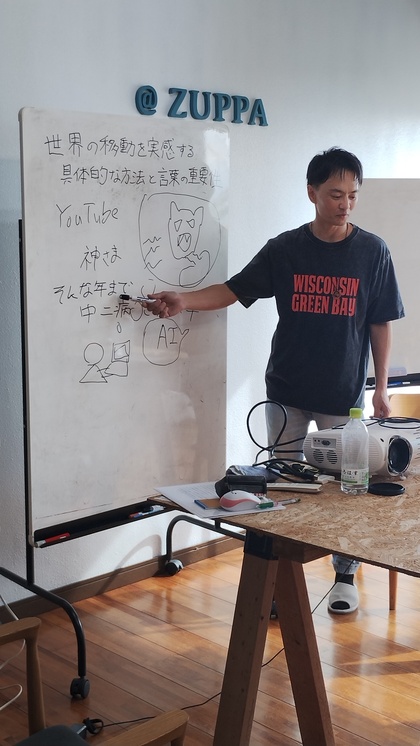 @ ZUPPA
世界の移動を実感する
具体的な方法と言葉の重要性
YouTube
神さま
そんな年まで
中二病
AI
WISCONSIN
GREEN BAY